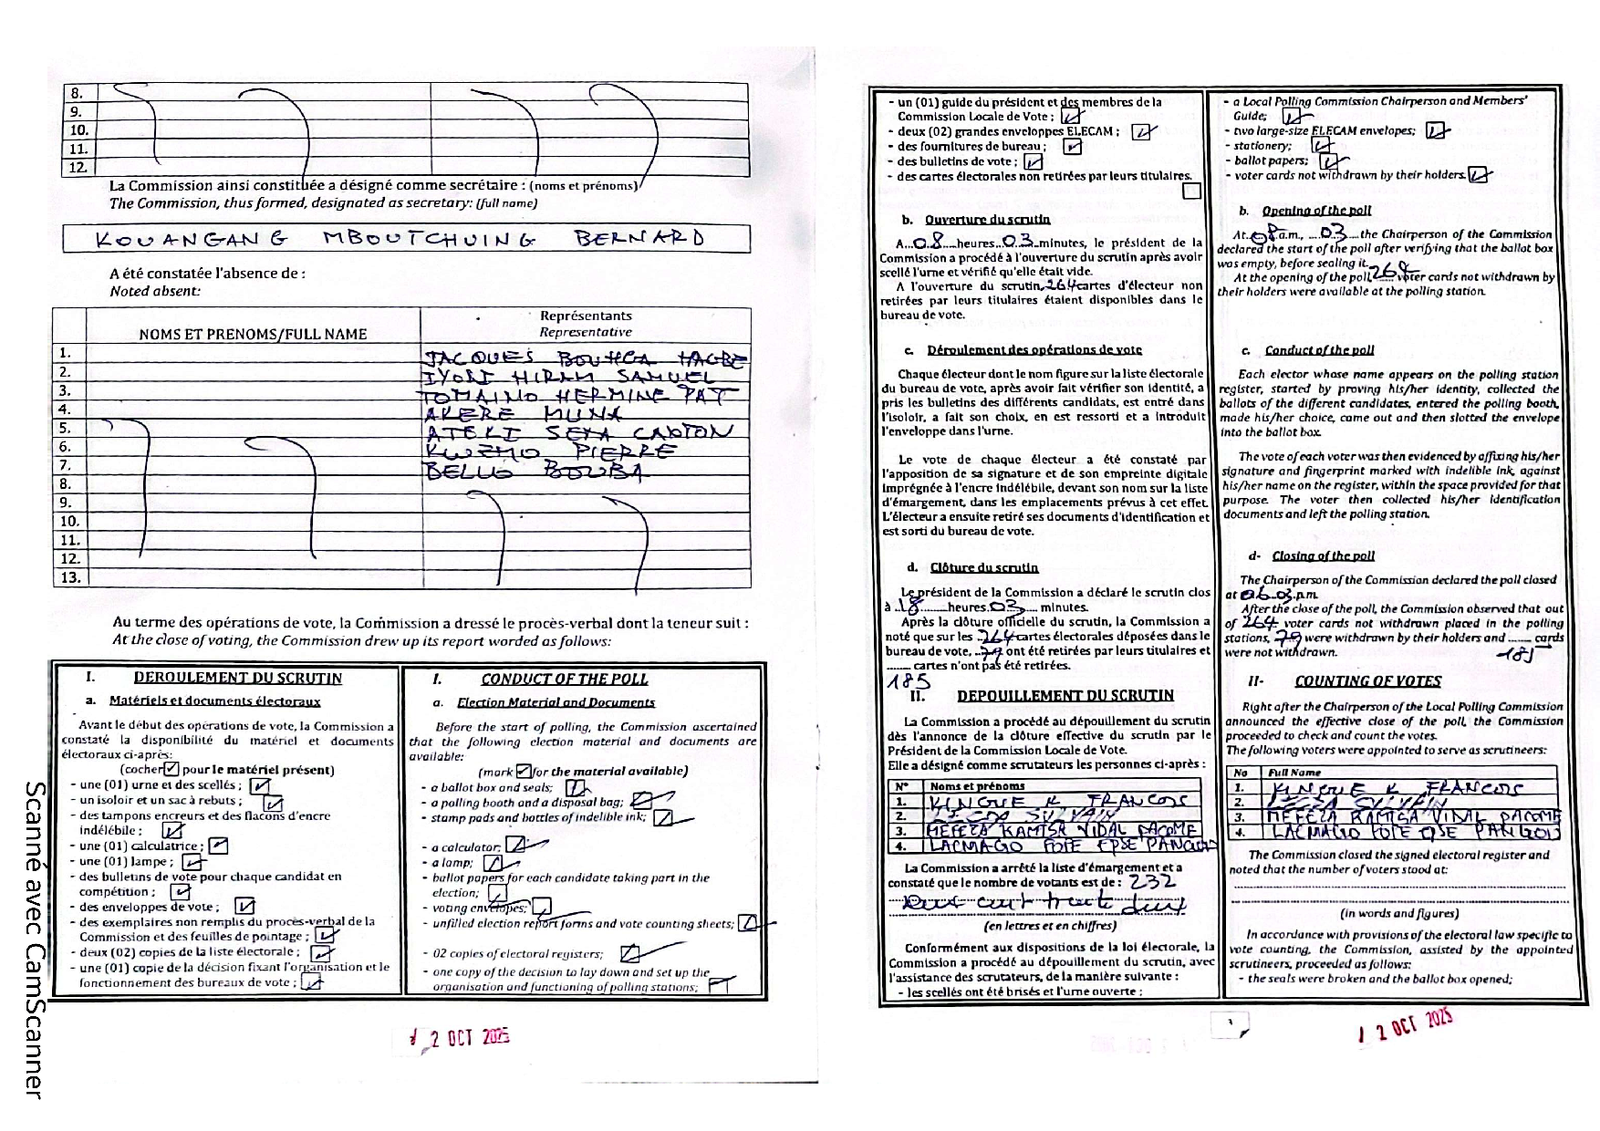 8.
9.
10.
11.
12.
La Commission ainsi constituée a désigné comme secrétaire : (noms et prénoms)
The Commission, thus formed, designated as secretary: (full name)
KOUANGANG MBOUTCHUING BERNARD
A été constatée l'absence de :
Noted absent:
NOMS ET PRENOMS/FULL NAME
Représentants
Representative
1. JACQUES BOUHGA HAGBE
2. IYODI HIRAM SAMUEL
3. TOMAINO HERMINE PAT
4. AKERE MUNA
5. ATEKI SETA CAXTON
6. KWEMO PIERRE
7. BELLO BOUBA
8.
9.
10.
11.
12.
13.
Au terme des opérations de vote, la Commission a dressé le procès-verbal dont la teneur suit :
At the close of voting, the Commission drew up its report worded as follows:
I. DEROULEMENT DU SCRUTIN
a. Matériels et documents électoraux
Avant le début des opérations de vote, la Commission a
constaté la disponibilité du matériel et documents
électoraux ci-après:
(cocher pour le matériel présent)
- une (01) urne et des scellés ;
- un isoloir et un sac à rebuts ;
- des tampons encreurs et des flacons d'encre
indélébile ;
- une (01) calculatrice ;
- une (01) lampe ;
- des bulletins de vote pour chaque candidat en
compétition ;
- des enveloppes de vote ;
- des exemplaires non remplis du procès-verbal de la
Commission et des feuilles de pointage ;
- deux (02) copies de la liste électorale ;
- une (01) copie de la décision fixant l'organisation et le
fonctionnement des bureaux de vote ;
I. CONDUCT OF THE POLL
a. Election Material and Documents
Before the start of polling, the Commission ascertained
that the following election material and documents are
available:
(mark for the material available)
- a ballot box and seals;
- a polling booth and a disposal bag;
- stamp pads and bottles of indelible ink;
- a calculator;
- a lamp;
- ballot papers for each candidate taking part in the
election;
- voting envelopes;
- unfilled election report forms and vote counting sheets;
- 02 copies of electoral registers;
- one copy of the decision to lay down and set up the
organisation and functioning of polling stations;
12 OCT 2025
Scanné avec CamScanner
- un (01) guide du président et des membres de la
Commission Locale de Vote ;
- deux (02) grandes enveloppes ELECAM ;
- des fournitures de bureau ;
- des bulletins de vote ;
- des cartes électorales non retirées par leurs titulaires.
b. Ouverture du scrutin
A...08....heures..03..minutes, le président de la
Commission a procédé à l'ouverture du scrutin après avoir
scellé l'urne et vérifié qu'elle était vide.
A l'ouverture du scrutin, 264 cartes d'électeur non
retirées par leurs titulaires étaient disponibles dans le
bureau de vote.
c. Déroulement des opérations de vote
Chaque électeur dont le nom figure sur la liste électorale
du bureau de vote, après avoir fait vérifier son identité, a
pris les bulletins des différents candidats, est entré dans
l'isoloir, a fait son choix, en est ressorti et a introduit
l'enveloppe dans l'urne.
Le vote de chaque électeur a été constaté par
l'apposition de sa signature et de son empreinte digitale
imprégnée à l'encre indélébile, devant son nom sur la liste
d'émargement, dans les emplacements prévus à cet effet.
L'électeur a ensuite retiré ses documents d'identification et
est sorti du bureau de vote.
d. Clôture du scrutin
Le président de la Commission a déclaré le scrutin clos
à ..18........heures.03.... minutes.
Après la clôture officielle du scrutin, la Commission a
noté que sur les 264 cartes électorales déposées dans le
bureau de vote, 79 ont été retirées par leurs titulaires et
........ cartes n'ont pas été retirées.
185
II. DEPOUILLEMENT DU SCRUTIN
La Commission a procédé au dépouillement du scrutin
dès l'annonce de la clôture effective du scrutin par le
Président de la Commission Locale de Vote.
Elle a désigné comme scrutateurs les personnes ci-après :
N° Noms et prénoms
1. KINGUE K. FRANCOIS
2. SYLVAIN
3. MEFEZA KAMTSA VIDAL PACOME
4. LACMAGO FOTE EPSE PANGOD
La Commission a arrêté la liste d'émargement et a
constaté que le nombre de votants est de : 232
Deux cent trente deux
(en lettres et en chiffres)
Conformément aux dispositions de la loi électorale, la
Commission a procédé au dépouillement du scrutin, avec
l'assistance des scrutateurs, de la manière suivante :
- les scellés ont été brisés et l'urne ouverte ;
- a Local Polling Commission Chairperson and Members'
Guide;
- two large-size ELECAM envelopes;
- stationery;
- ballot papers;
- voter cards not withdrawn by their holders.
b. Opening of the poll
At 08 a.m., ....03.... the Chairperson of the Commission
declared the start of the poll after verifying that the ballot box
was empty, before sealing it.
At the opening of the poll, 264 voter cards not withdrawn by
their holders were available at the polling station.
c. Conduct of the poll
Each elector whose name appears on the polling station
register, started by proving his/her identity, collected the
ballots of the different candidates, entered the polling booth,
made his/her choice, came out and then slotted the envelope
into the ballot box.
The vote of each voter was then evidenced by affixing his/her
signature and fingerprint marked with indelible ink, against
his/her name on the register, within the space provided for that
purpose. The voter then collected his/her identification
documents and left the polling station.
d- Closing of the poll
The Chairperson of the Commission declared the poll closed
at 06.03.p.m.
After the close of the poll, the Commission observed that out
of 264 voter cards not withdrawn placed in the polling
stations, 79 were withdrawn by their holders and ........ cards
were not withdrawn. 185
II- COUNTING OF VOTES
Right after the Chairperson of the Local Polling Commission
announced the effective close of the poll, the Commission
proceeded to check and count the votes.
The following voters were appointed to serve as scrutineers:
No Full Name
1. KINGUE K FRANCOIS
2. SYLVAIN
3. MEFEZA KAMTSA VIDAL PACOME
4. LACMAGO FOTE EPSE PANGOD
The Commission closed the signed electoral register and
noted that the number of voters stood at:
(in words and figures)
In accordance with provisions of the electoral law specific to
vote counting, the Commission, assisted by the appointed
scrutineers, proceeded as follows:
- the seals were broken and the ballot box opened;
12 OCT 2025